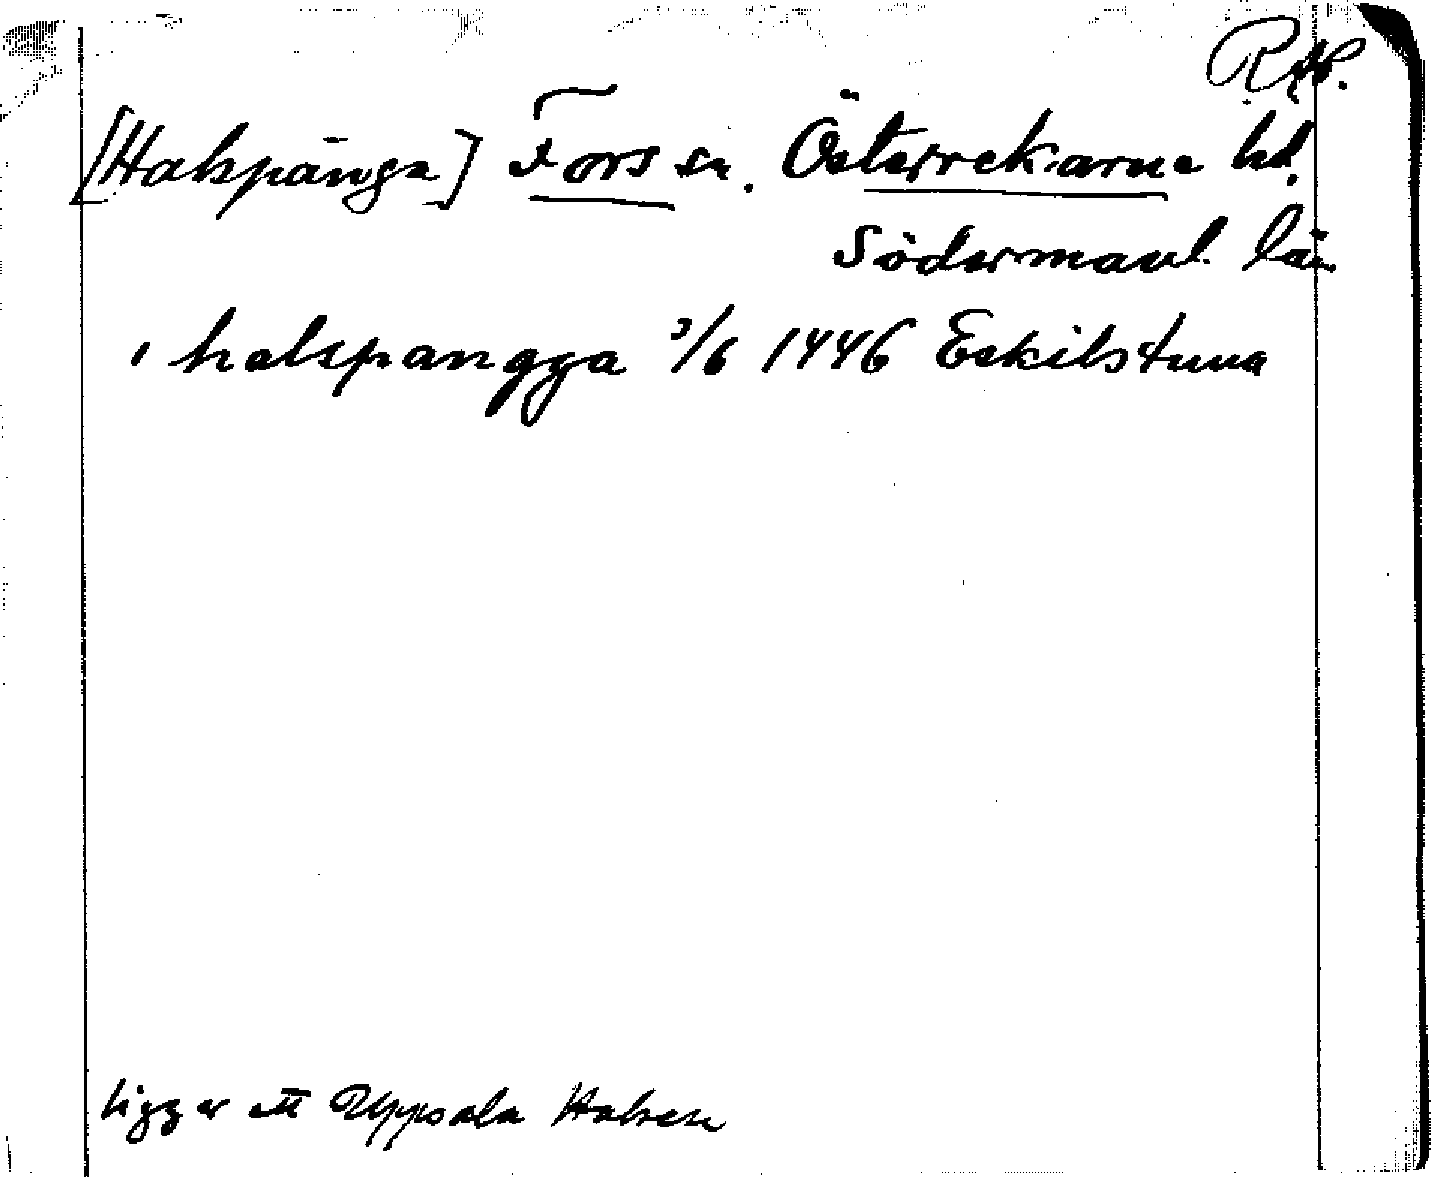 RAp.
[Halspänga] Fors sn. Österrekarne hd.
Södermanl. län
i halspangga 3/6 1446 Eskilstuna
ligger ett Uppsala